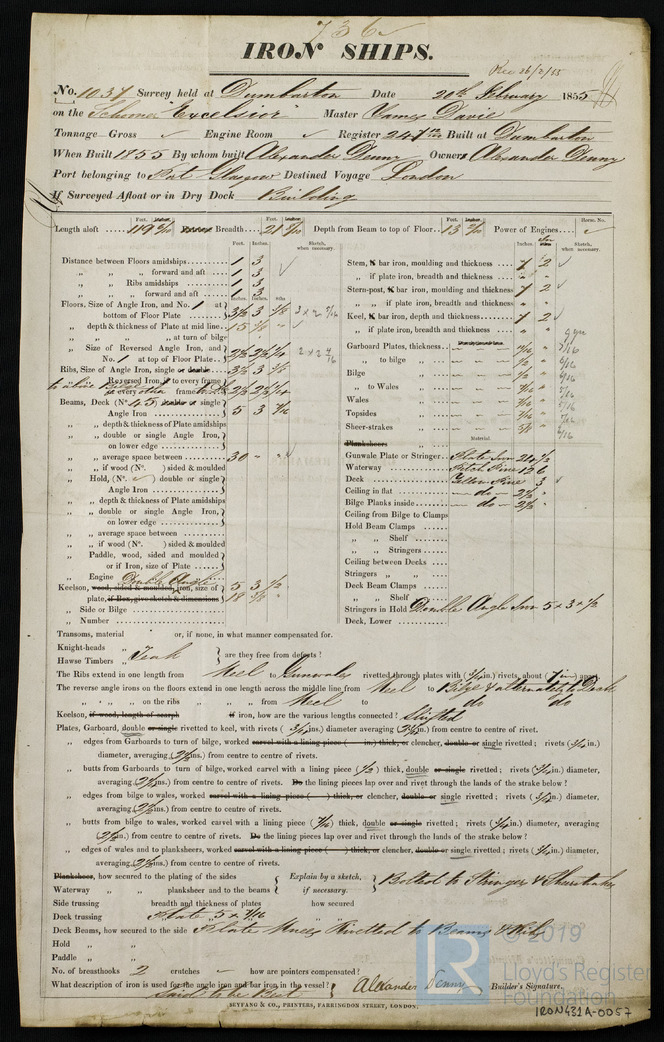 736
IRON SHIPS.
Rec 26/2/55
No. 1031 Survey held at Dumbarton Date 20th February 1855
on the Schooner "Excelsior" Master James Davie
Tonnage Gross Engine Room Register 247 Built at Dumbarton
When Built 1855 By whom built Alexander Denny Owners Alexander Denny
Port belonging to Port Glasgow Destined Voyage London
If Surveyed Afloat or in Dry Dock Building
Length aloft 119 Breadth 21 Depth from Beam to top of Floor 13 Power of Engines
Feet. Inches. Sketch, when necessary.
Distance between Floors amidships 1 3
„ „ „ forward and aft 1 3
„ „ Ribs amidships 1 3
„ „ „ forward and aft 1 3
Floors, Size of Angle Iron, and No. 1 at bottom of Floor Plate
„ depth & thickness of Plate at mid line
„ „ „ at turn of bilge
„ Size of Reversed Angle Iron, and No. 1 at top of Floor Plate
Ribs, Size of Angle Iron, single or double
„ Reversed Iron, to every frame
Beams, Deck (No. 45) double or single Angle Iron 5 3
„ „ depth & thickness of Plate amidships
„ „ double or single Angle Iron, on lower edge
„ „ average space between 30
„ „ if wood (No. ) sided & moulded
„ Hold, (No. ) double or single Angle Iron
„ „ depth & thickness of Plate amidships
„ „ double or single Angle Iron, on lower edge
„ „ average space between
„ „ if wood (No. ) sided & moulded
„ Paddle, wood, sided and moulded or if Iron, size of Plate
„ Engine
Double Angle
Keelson, wood, sided & moulded, iron, size of plate, if Box, give sketch & dimensions
„ Side or Bilge
„ Number
Stem, bar iron, moulding and thickness 7 2
„ if plate iron, breadth and thickness
Stern-post, bar iron, moulding and thickness 7 2
„ „ if plate iron, breadth and thickness
Keel, bar iron, depth and thickness 7 2
„ if plate iron, breadth and thickness
Garboard Plates, thickness
„ to bilge
Bilge
„ to Wales
Wales
Topsides
Sheer-strakes
Plankshears
Material.
Gunwale Plate or Stringer Plate Iron
Waterway Pitch Pine 12 6
Deck Yellow Pine 3
Ceiling in flat do 2½
Bilge Planks inside do 2½
Ceiling from Bilge to Clamps
Hold Beam Clamps
„ „ Shelf
„ „ Stringers
Ceiling between Decks
Stringers „ „
Deck Beam Clamps
„ „ Shelf
Stringers in Hold Double Angle Iron 5 × 3 × ½
Deck, Lower
Transoms, material or, if none, in what manner compensated for.
Knight-heads
Hawse Timbers Teak are they free from defects?
The Ribs extend in one length from Keel to Gunwale rivetted through plates with (¾ in.) rivets, about (7 in) apart.
The reverse angle irons on the floors extend in one length across the middle line from Keel to Bilge & alternately to Deck
„ „ „ on the ribs „ „ „ from Keel to do do
Keelson, if wood, length of scarph if iron, how are the various lengths connected? Shifted
Plates, Garboard, double or single rivetted to keel, with rivets (¾ in.) diameter averaging (2½ in.) from centre to centre of rivets.
„ edges from Garboards to turn of bilge, worked carvel with a lining piece ( in.) thick, or clencher, double or single rivetted; rivets (¾ in.) diameter, averaging (2½ ins.) from centre to centre of rivets.
„ butts from Garboards to turn of bilge, worked carvel with a lining piece (½) thick, double or single rivetted; rivets (¾ in.) diameter, averaging (2½ ins.) from centre to centre of rivets. Do the lining pieces lap over and rivet through the lands of the strake below?
„ edges from bilge to wales, worked carvel with a lining piece ( ) thick, or clencher, double or single rivetted; rivets (¾ in.) diameter, averaging (2½ ins.) from centre to centre of rivets.
„ butts from bilge to wales, worked carvel with a lining piece (7/16) thick, double or single rivetted; rivets (¾ in.) diameter, averaging (2½ ins.) from centre to centre of rivets. Do the lining pieces lap over and rivet through the lands of the strake below?
„ edges of wales and to planksheers, worked carvel with a lining piece ( ) thick, or clencher, double or single rivetted; rivets (¾ in.) diameter, averaging (2½ ins.) from centre to centre of rivets.
Planksheer, how secured to the plating of the sides Explain by a sketch, if necessary. Bolted to Stringer & Sheerstrake
Waterway „ „ planksheer and to the beams
Side trussing breadth and thickness of plates how secured
Deck trussing Plate 5 × 7/16 „ „
Deck Beams, how secured to the side Plate Knees Rivetted to Beams & Ribs
Hold „ „
Paddle „ „
No. of breasthooks 2 crutches how are pointers compensated?
What description of iron is used for the angle iron and bar iron in the vessel? Said to be Best
Alexander Denny Builder's Signature.
SEYFANG & CO., PRINTERS, FARRINGDON STREET, LONDON.
© 2019
Lloyd's Register
Foundation
IRON431A-0057